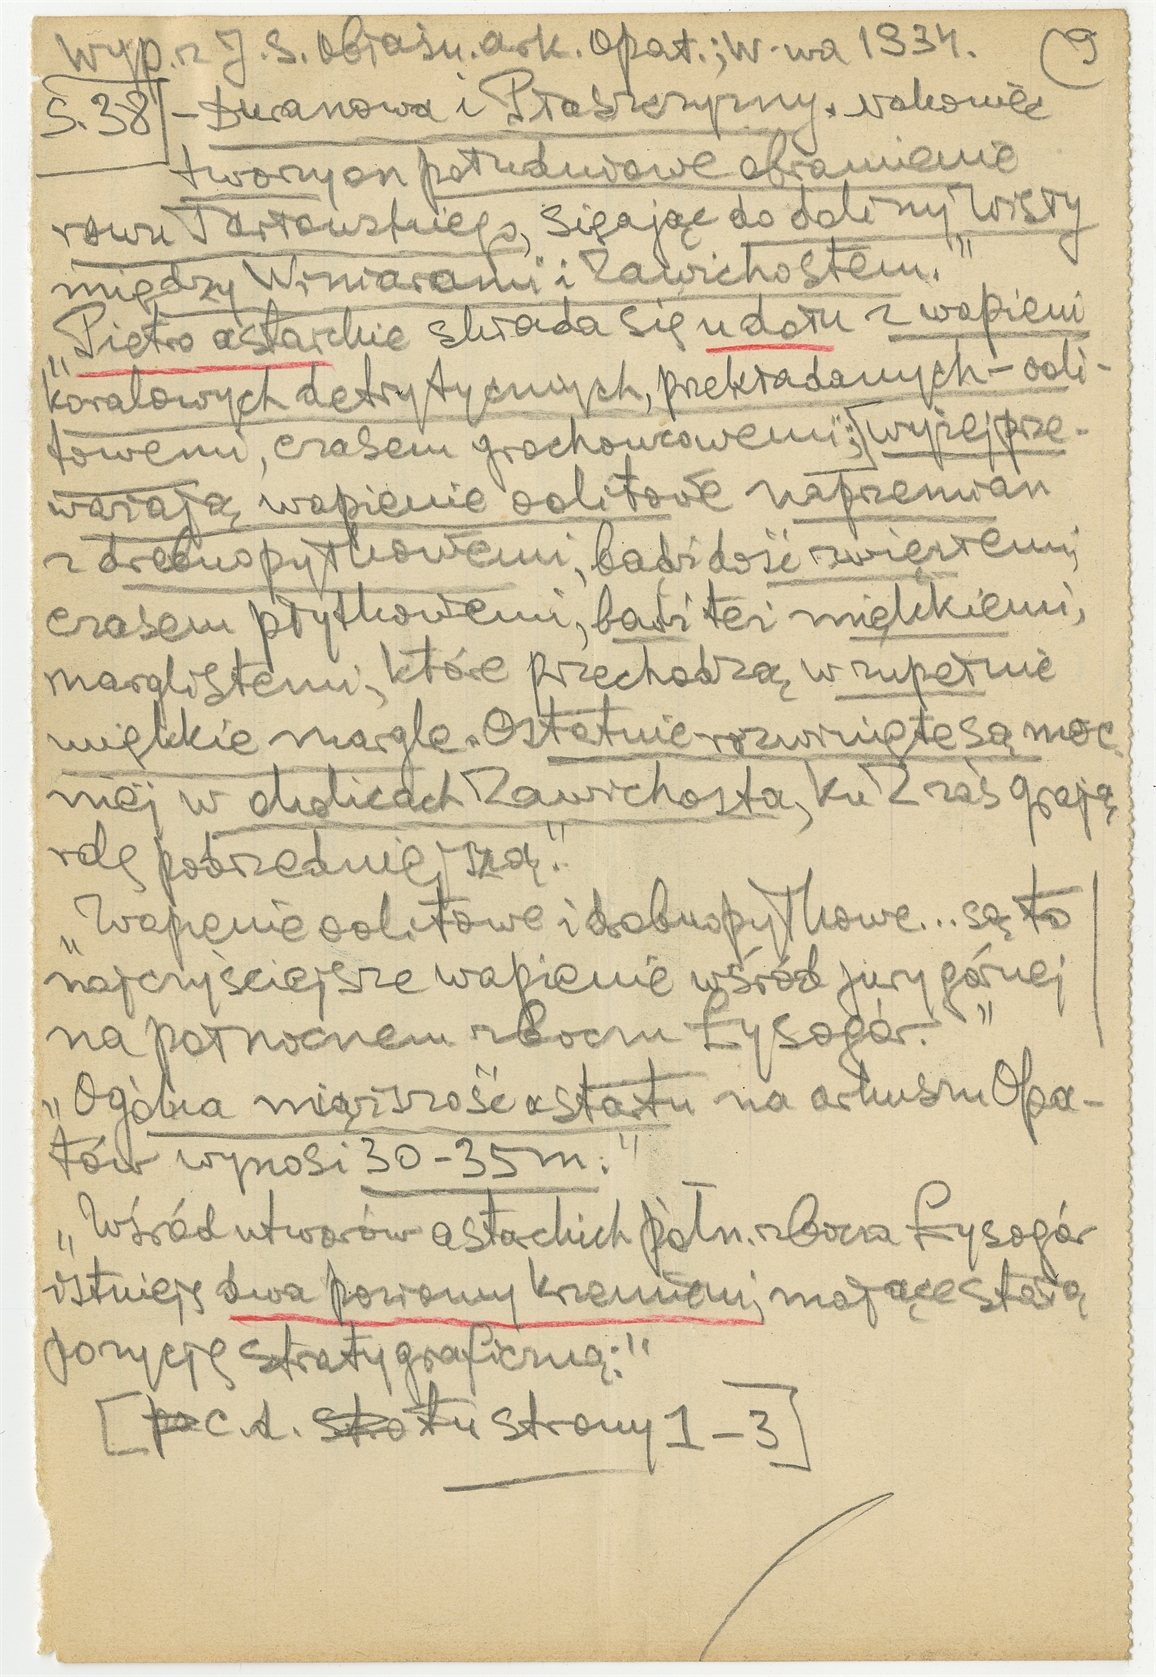 Wyp. z J. S. Objaśn. ark. Opat.; W-wa 1934. (9
S. 38] - Duranowa i Ptaszczyzny. Nakoniec
tworzy on południowe obramienie
rowu Tarłowskiego, sięgając do doliny Wisły
między Winiarami i Zawichostem."
„Piętro astarckie składa się u dołu z wapieni
koralowych detrytycznych, przekładanych - ooli-
towemi, czasem grochowcowemi;] wyżej prze-
ważają wapienie oolitowe naprzemian
z drobnopytkowemi, bądź dość zwięzłemi,
czasem płytkowemi, bądź też miękkiemi,
marglistemi, które przechodzą w zupełnie
miękkie margle. Ostatnie rozwinięte są moc
niej w okolicach Zawichosta, ku Z zaś grają
rolę podrzędniejszą."
„Wapienie oolitowe i drobnopytkowe... są to
najczyściejsze wapienie wśród jury górnej
na północnem zboczu Łysogór."
„Ogólna miąższość astartu na arkuszu Opa-
tów wynosi 30-35 m."
„Wśród utworów astarckich półn. zbocza Łysogór
istnieją dwa poziomy krzemieni, mające stałą
pozycję stratygraficzną:"
[c.d. tu strony 1-3]